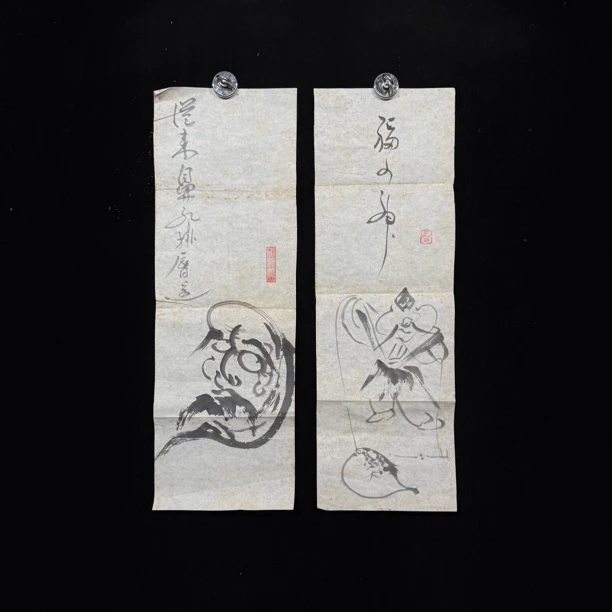 福の神
従来鼻孔掛唇辺